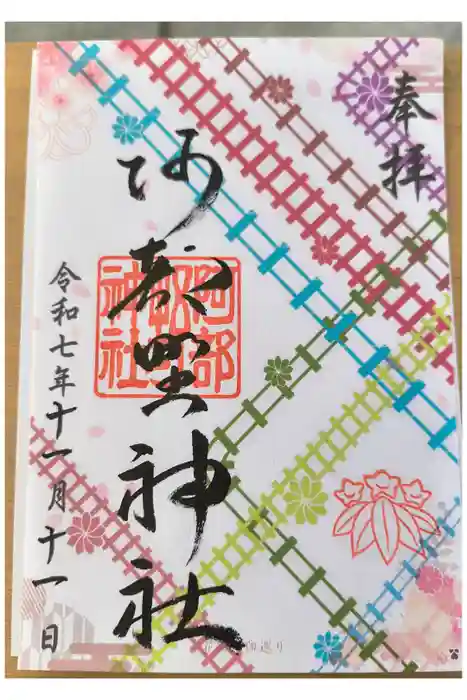 奉拝
阿部野神社
阿部野神社
令和七年十一月十一日
巡り